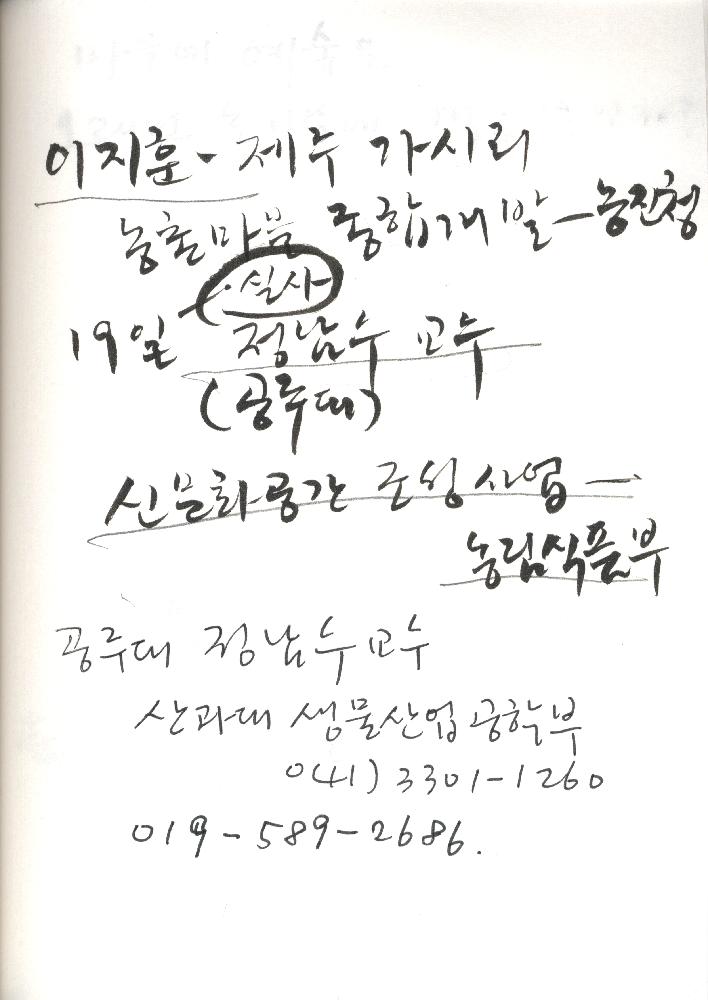 이지훈 - 제주 가시리
농촌마을 종합개발 - 농진청
· 실사
19일 정남수 교수
(공주대)
신문화공간 조성사업 —
농림식품부
공주대 정남수 교수
산과대 생물산업공학부
041) 3301-1260
019-589-2686.